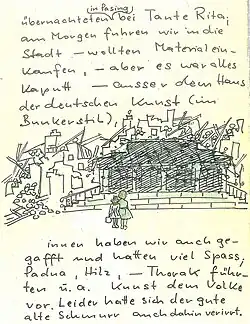 (in Pasing)
übernachteten bei Tante Rita;
am Morgen fuhren wir in die
Stadt – wollten Material ein-
kaufen, – aber es war alles
kaputt – ausser dem Haus
der deutschen Kunst (im
Bunkerstil),
innen haben wir auch ge-
gafft und hatten viel Spass,
Padua, Hilz, – Thorak führ-
ten u.a. Kunst dem Volke
vor. Leider hatte sich der gute
alte Schmurr auch dahin verirrt.